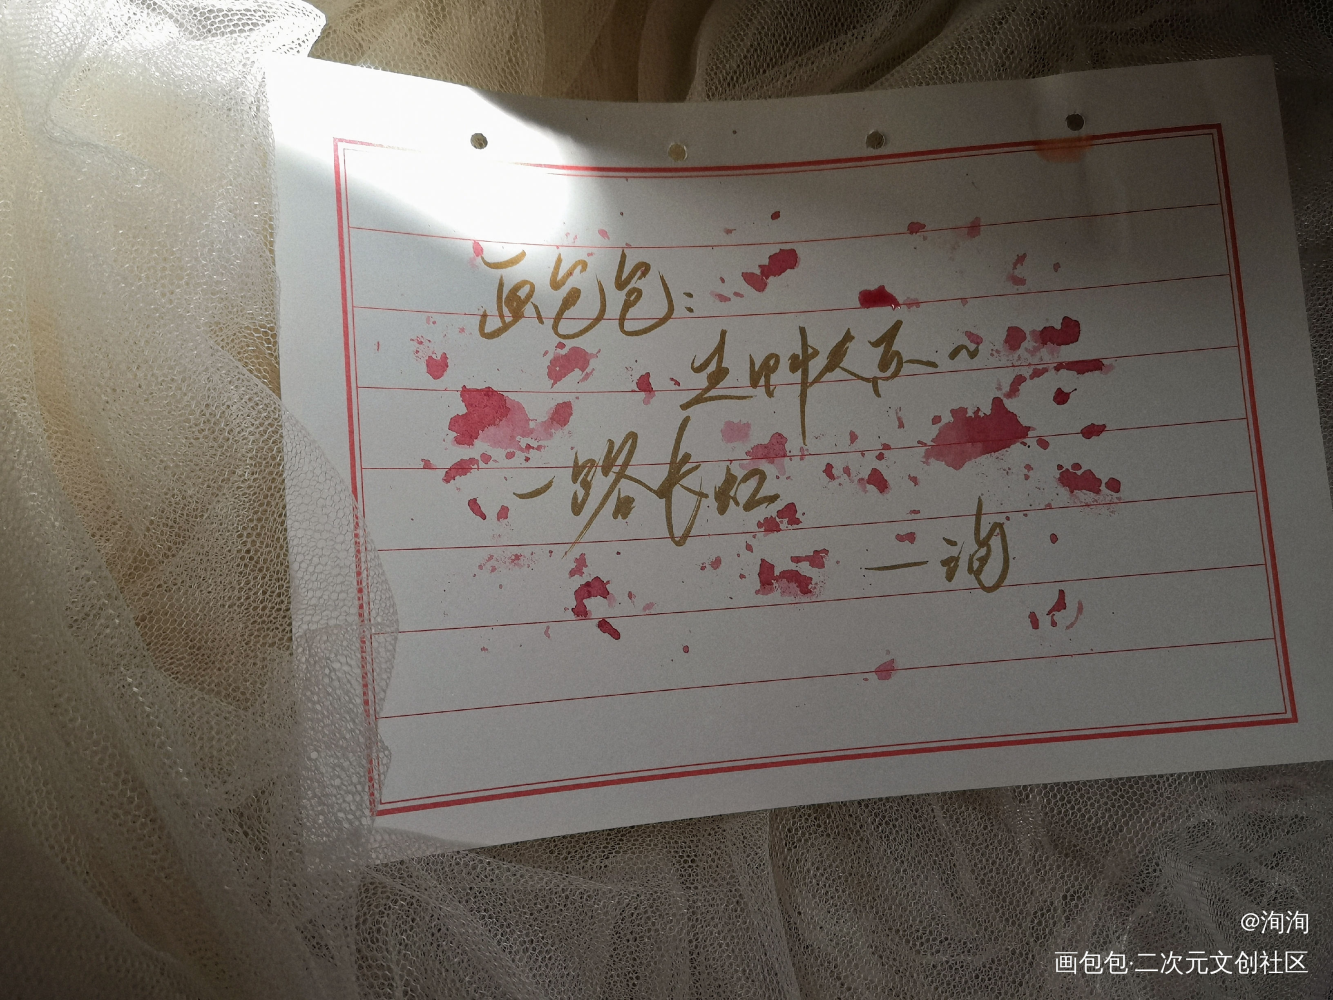 画包包：
生日快乐~
一路长虹
—洵
@洵洵
画包包·二次元文创社区